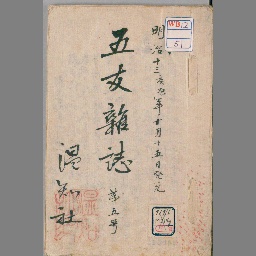 明治十三庚辰年十月十五日発兌
五友雜誌
第五号
温知社
WB12
51